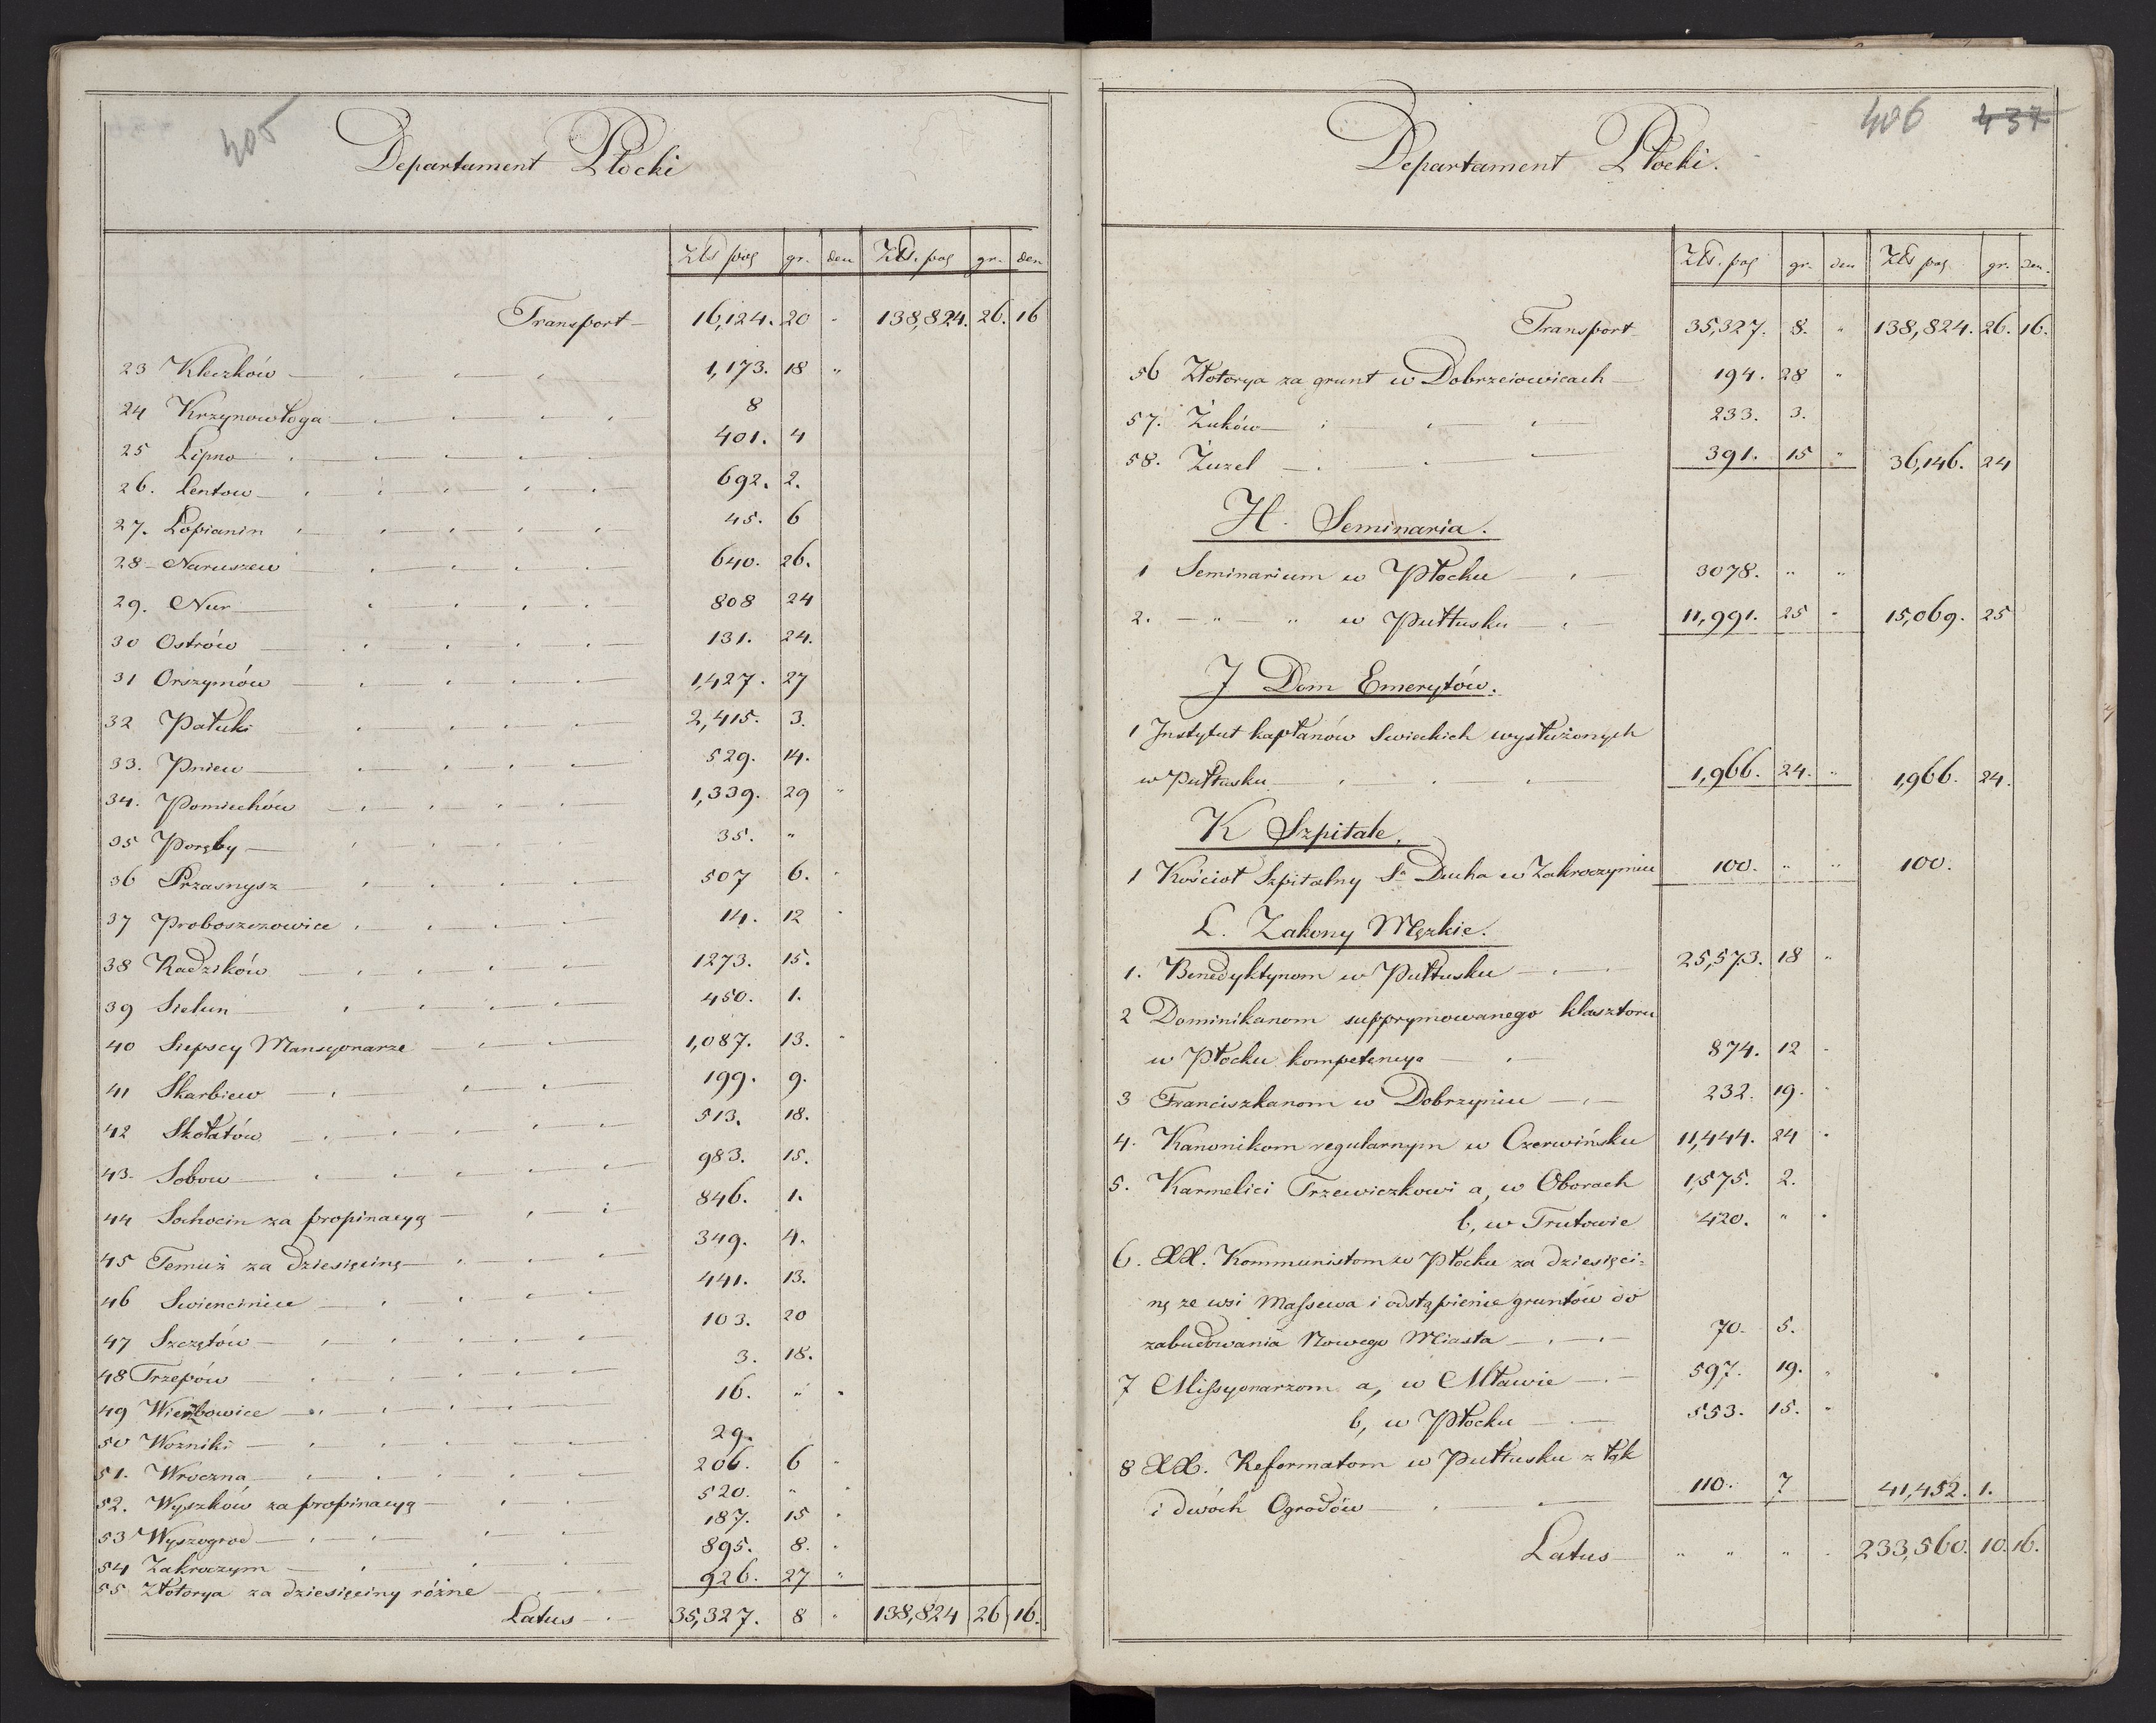 405
Departament Płocki
Złt pol gr. den Złt. pol gr. den
Transport — 16,124. 20 " 138,824. 26. 16
23 Kleczków — 1,173. 18 "
24 Krzynowłoga — 8
25 Lipno — 401. 4
26. Lentow — 692. 2.
27. Łopianin — 45. 6
28 — Naruszew 640. 26.
29. Nur — 808 24
30 Ostrów — 131. 24.
31 Orszymów — 1,427. 27
32 Pałuki — 2,415. 3.
33. Pniew — 529. 14.
34. Pomiechów — 1,339. 29 "
35 Poręby — 35. "
36 Przasnysz — 507 6. "
37 Proboszczowice 14. 12 "
38 Radzików — 1273. 15.
39 Sielun — 450. 1.
40 Siepscy Mansyonarze — 1,087. 13. "
41 Skarbiew — 199. 9.
42 Skołatów — 513. 18.
43. Sobow — 983. 15.
44 Sochocin za propinacyą — 846. 1.
45 Temuż za dziesięcinę — 349. 4.
46 Swiencinice — 441. 13.
47 Szczętów — 103. 20
48 Trzepów — 3. 18.
49 Wierzbowice — 16. " "
50 Wozniki — 29.
51. Wroczna — 206. 6 "
52. Wyszków za propinacyą — 520. " "
53 Wyszogrod — 187. 15 "
54 Zakroczym — 895. 8. "
55 Złotorya za dziesięciny różne — 926. 27 "
Latus — 35,327. 8 " 138,824 26 16.
406 437
Departament Płocki.
Złt. pol gr. den Złt pol gr. den.
Transport — 35,327. 8. " 138,824. 26. 16.
56 Złotorya za grunt w Dobrzeiowicach — 194. 28 "
57. Żuków — 233. 3.
58. Żuzel — 391. 15 " 36,146. 24
H. Seminaria.
1 Seminarium w Płocku — 3078. " "
2. — " — " w Pułtusku — 11,991. 25 " 15,069. 25
J Dom Emerytów.
1 Instytut kapłanów Swieckich wysłużonych
w Pułtusku — 1,966. 24. " 1,966. 24.
K Szpitale.
1 Kościoł Szpitalny Sgo Ducha w Zakroczymiu 100. " " 100.
L. Zakony Męzkie.
1. Benedyktynom w Pułtusku — 25,573. 18 "
2 Dominikanom supprymowanego klasztoru
w Płocku kompetencya — 874. 12 "
3 Franciszkanom w Dobrzyniu — 232. 19. "
4. Kanonikom regularnym w Czerwińsku 11,444. 24 "
5. Karmelici Trzewiczkowi a, w Oborach 1,575. 2.
b, w Trutowie 420. " "
6. XX. Kommunistom w Płocku za dziesięci=
nę ze wsi Massewa i odstąpienie gruntów do
zabudowania Nowego Miasta — 70. 5.
7 Missyonarzom a, w Mławie — 597. 19. "
b, w Płocku — 553. 15. "
8 XX. Reformatom w Pułtusku z łąk
i dwóch Ogrodów — 110. 7 41,452. 1.
Latus — " " " " 233,560. 10. 16.